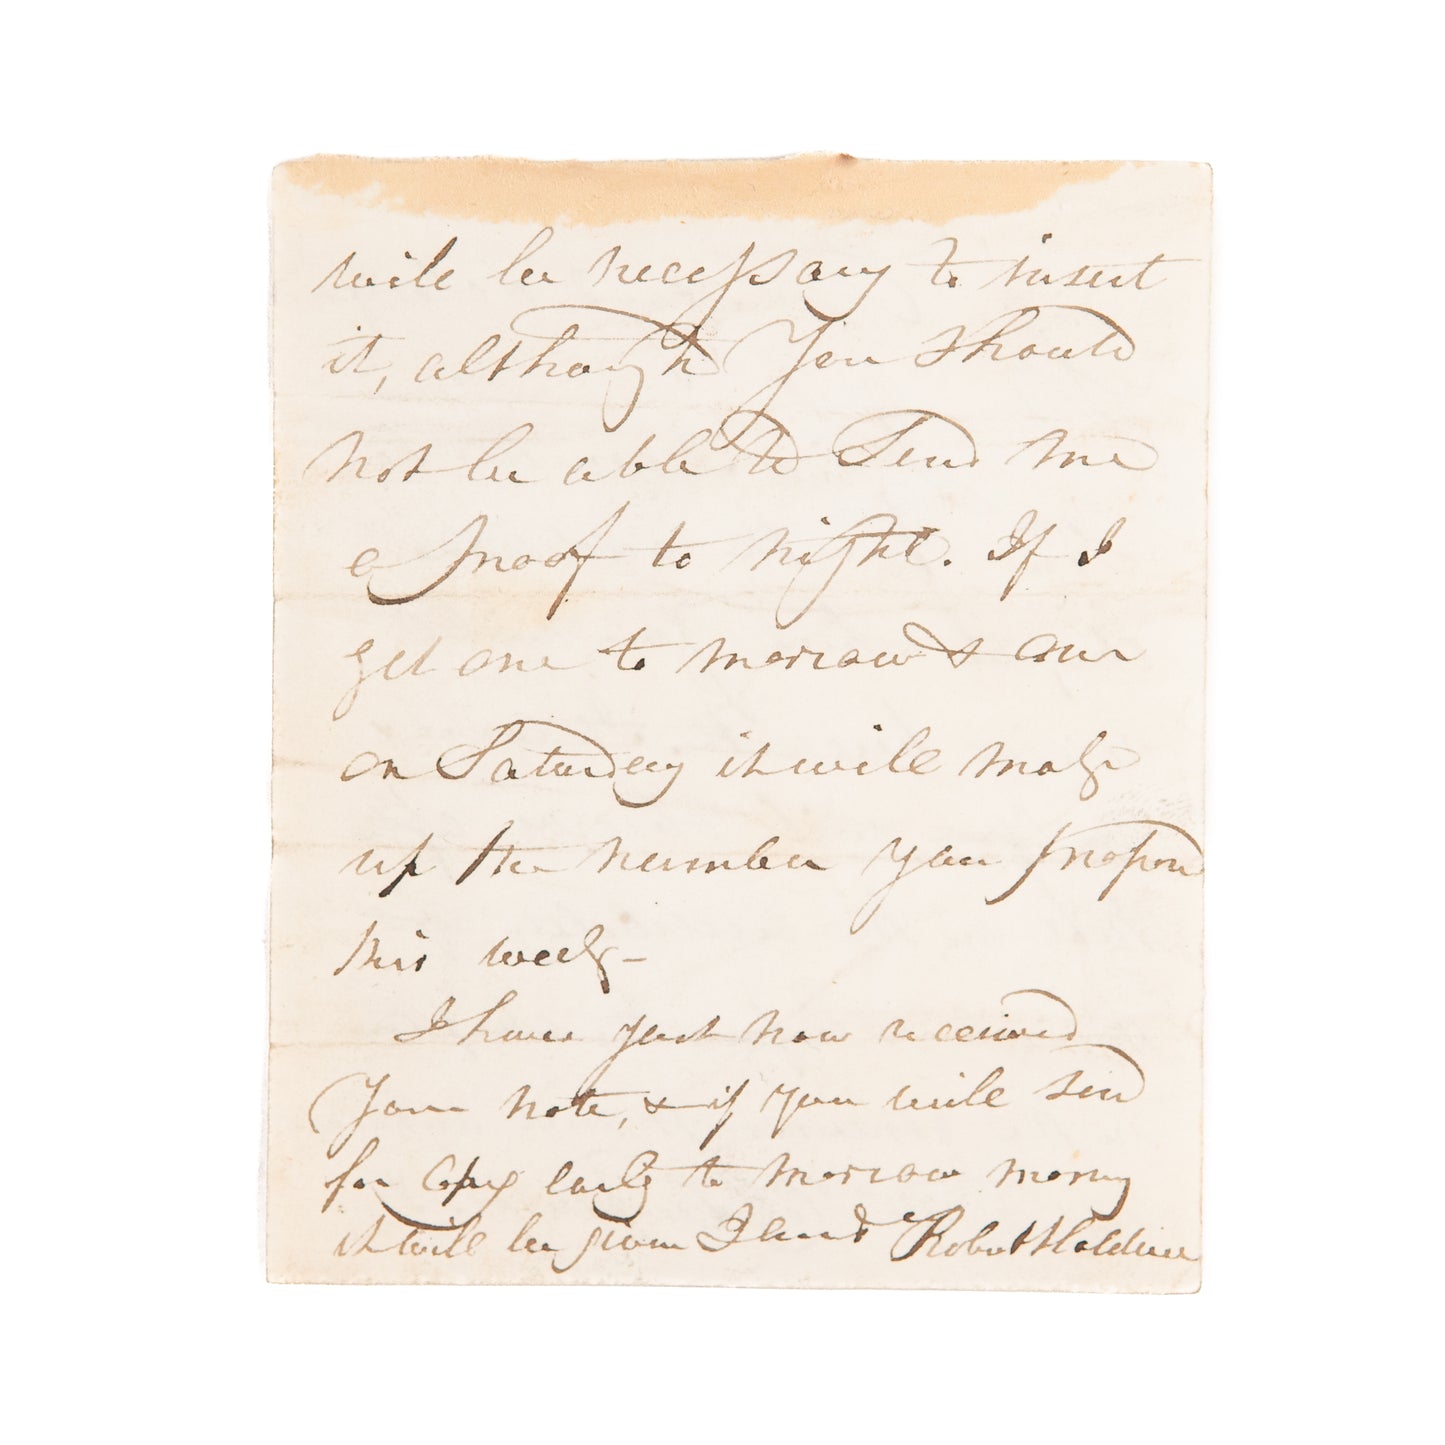 will be necessary to insert
it, although You should
not be able to Send me
a proof to night. If I
get one to morrow & one
on Saturday it will make
up the number you propose
this week –
I have just now received
Your note, & if you will send
for Copy early to morrow morng
it will be given I am Robert